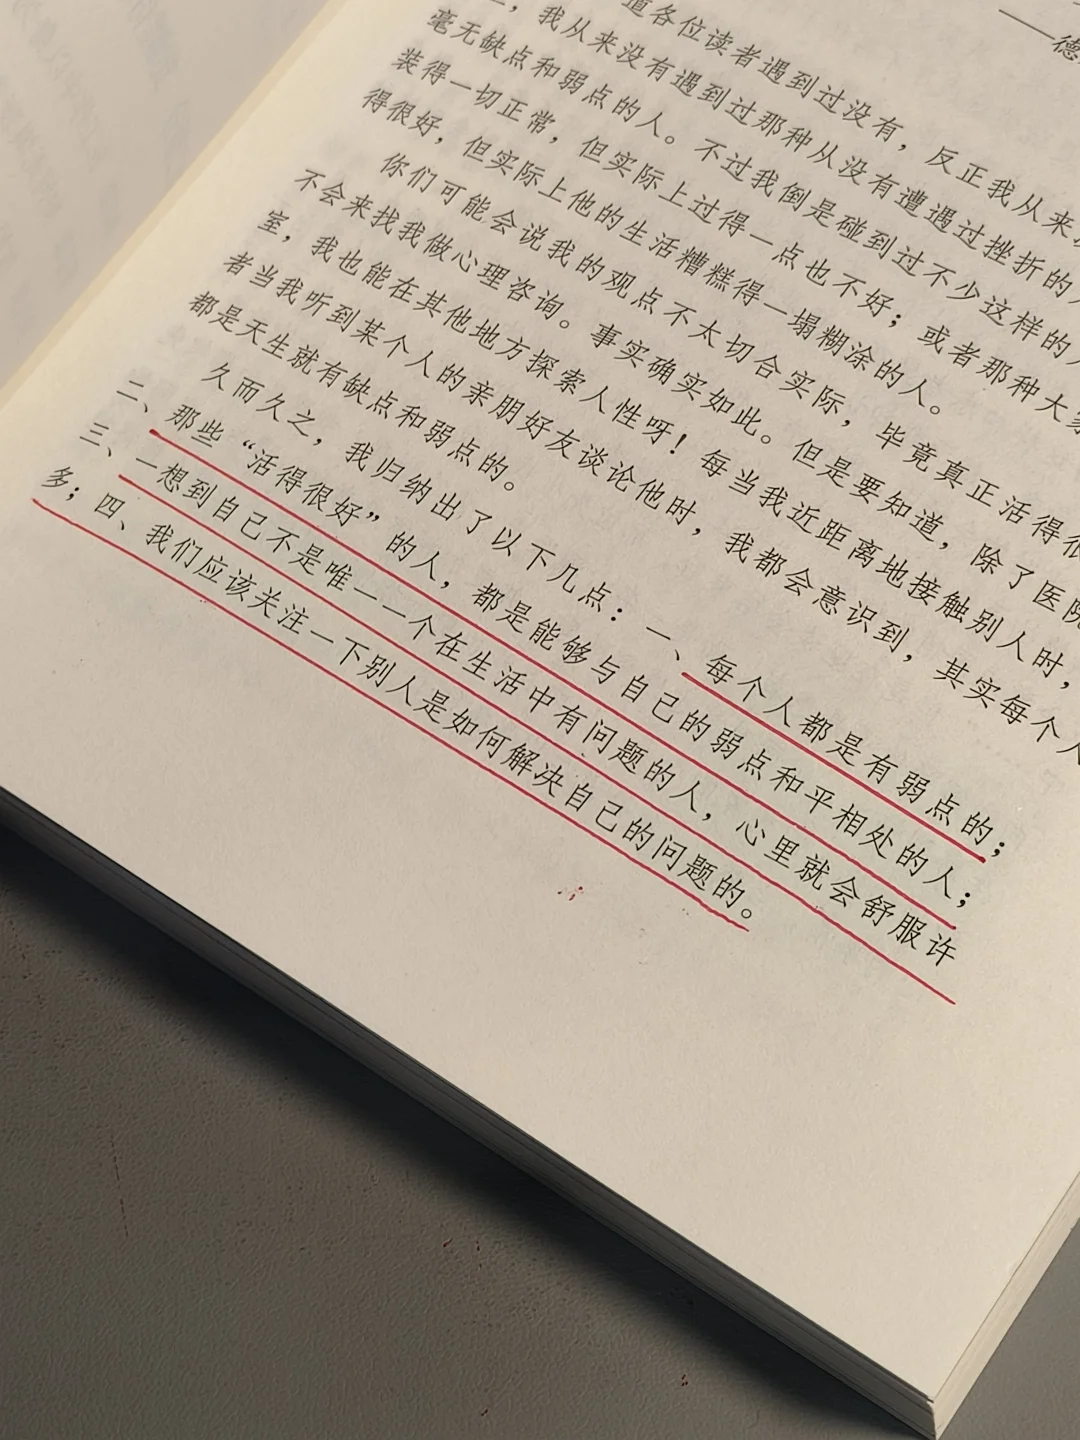 ——德
道各位读者遇到过没有，反正我从来
，我从来没有遇到过那种从没有遭遇过挫折的
毫无缺点和弱点的人。不过我倒是碰到过不少这样的
装得一切正常，但实际上过得一点也不好；或者那种大家
得很好，但实际上他的生活糟糕得一塌糊涂的人。
你们可能会说我的观点不太切合实际，毕竟真正活得很
不会来找我做心理咨询。事实确实如此。但是要知道，除了医院
室，我也能在其他地方探索人性呀！每当我近距离地接触别人时，
者当我听到某个人的亲朋好友谈论他时，我都会意识到，其实每个人
都是天生就有缺点和弱点的。
久而久之，我归纳出了以下几点：一、每个人都是有弱点的；
二、那些“活得很好”的人，都是能够与自己的弱点和平相处的人；
三、一想到自己不是唯一一个在生活中有问题的人，心里就会舒服许
多；四、我们应该关注一下别人是如何解决自己的问题的。